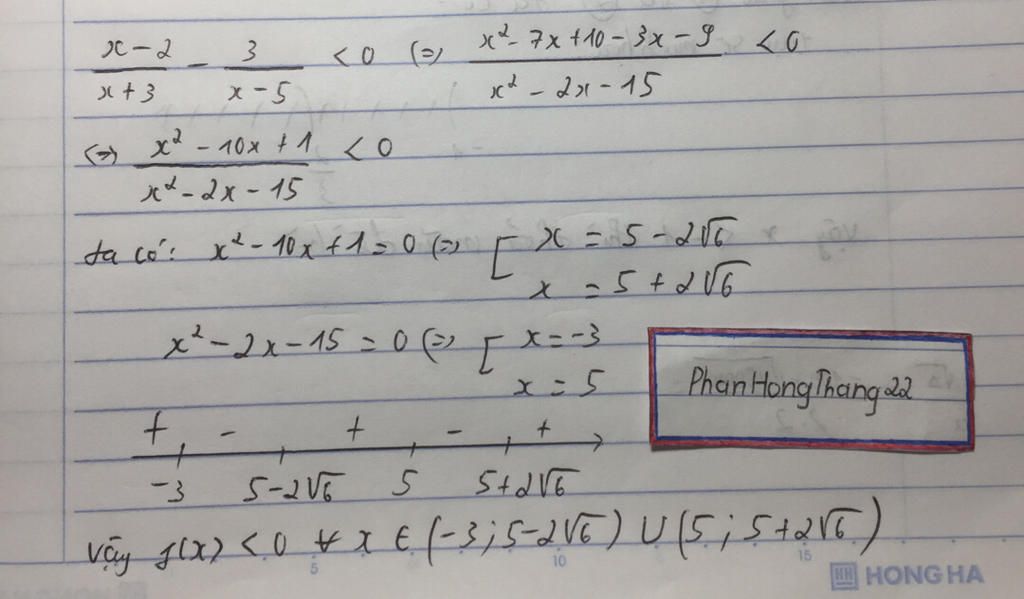 x-2/x+3 - 3/x-5 < 0 (=) x²-7x+10-3x-9/x²-2x-15 < 0
(=) x²-10x+1/x²-2x-15 < 0
ta có: x²-10x+1=0 (=) [ x = 5-2√6
x = 5+2√6
x²-2x-15=0 (=) [ x=-3
x=5
PhanHongThang22
+ - + - +
-3 5-2√6 5 5+2√6
Vậy f(x) < 0 ∀ x ∈ (-3; 5-2√6) ∪ (5; 5+2√6)
5 10 15
HH HONG HA